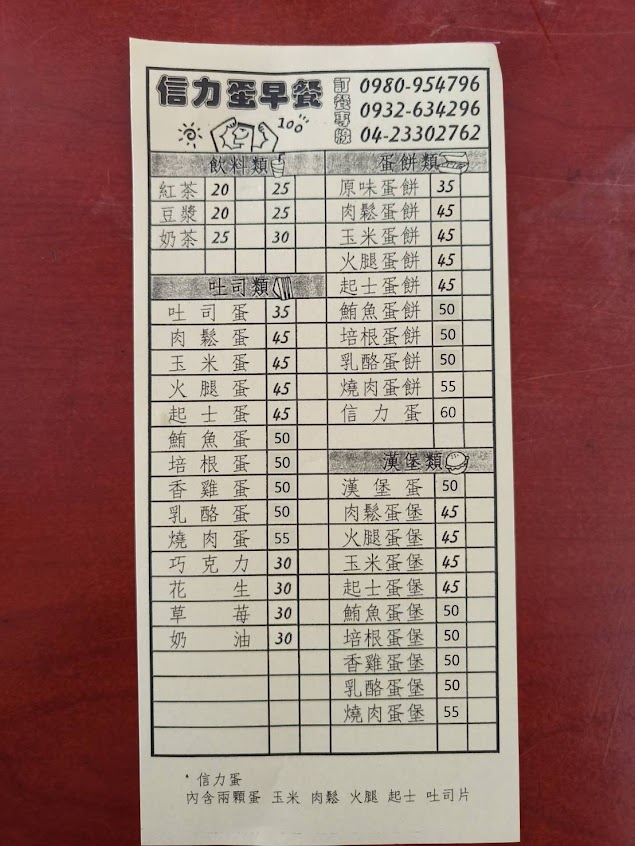 信力蛋早餐
訂餐專線
0980-954796
0932-634296
04-23302762
100
飲料類
紅茶 20 25
豆漿 20 25
奶茶 25 30
吐司類
吐司蛋 35
肉鬆蛋 45
玉米蛋 45
火腿蛋 45
起士蛋 45
鮪魚蛋 50
培根蛋 50
香雞蛋 50
乳酪蛋 50
燒肉蛋 55
巧克力 30
花生 30
草莓 30
奶油 30
蛋餅類
原味蛋餅 35
肉鬆蛋餅 45
玉米蛋餅 45
火腿蛋餅 45
起士蛋餅 45
鮪魚蛋餅 50
培根蛋餅 50
乳酪蛋餅 50
燒肉蛋餅 55
信力蛋 60
漢堡類
漢堡蛋 50
肉鬆蛋堡 45
火腿蛋堡 45
玉米蛋堡 45
起士蛋堡 45
鮪魚蛋堡 50
培根蛋堡 50
香雞蛋堡 50
乳酪蛋堡 50
燒肉蛋堡 55
* 信力蛋
內含兩顆蛋 玉米 肉鬆 火腿 起士 吐司片